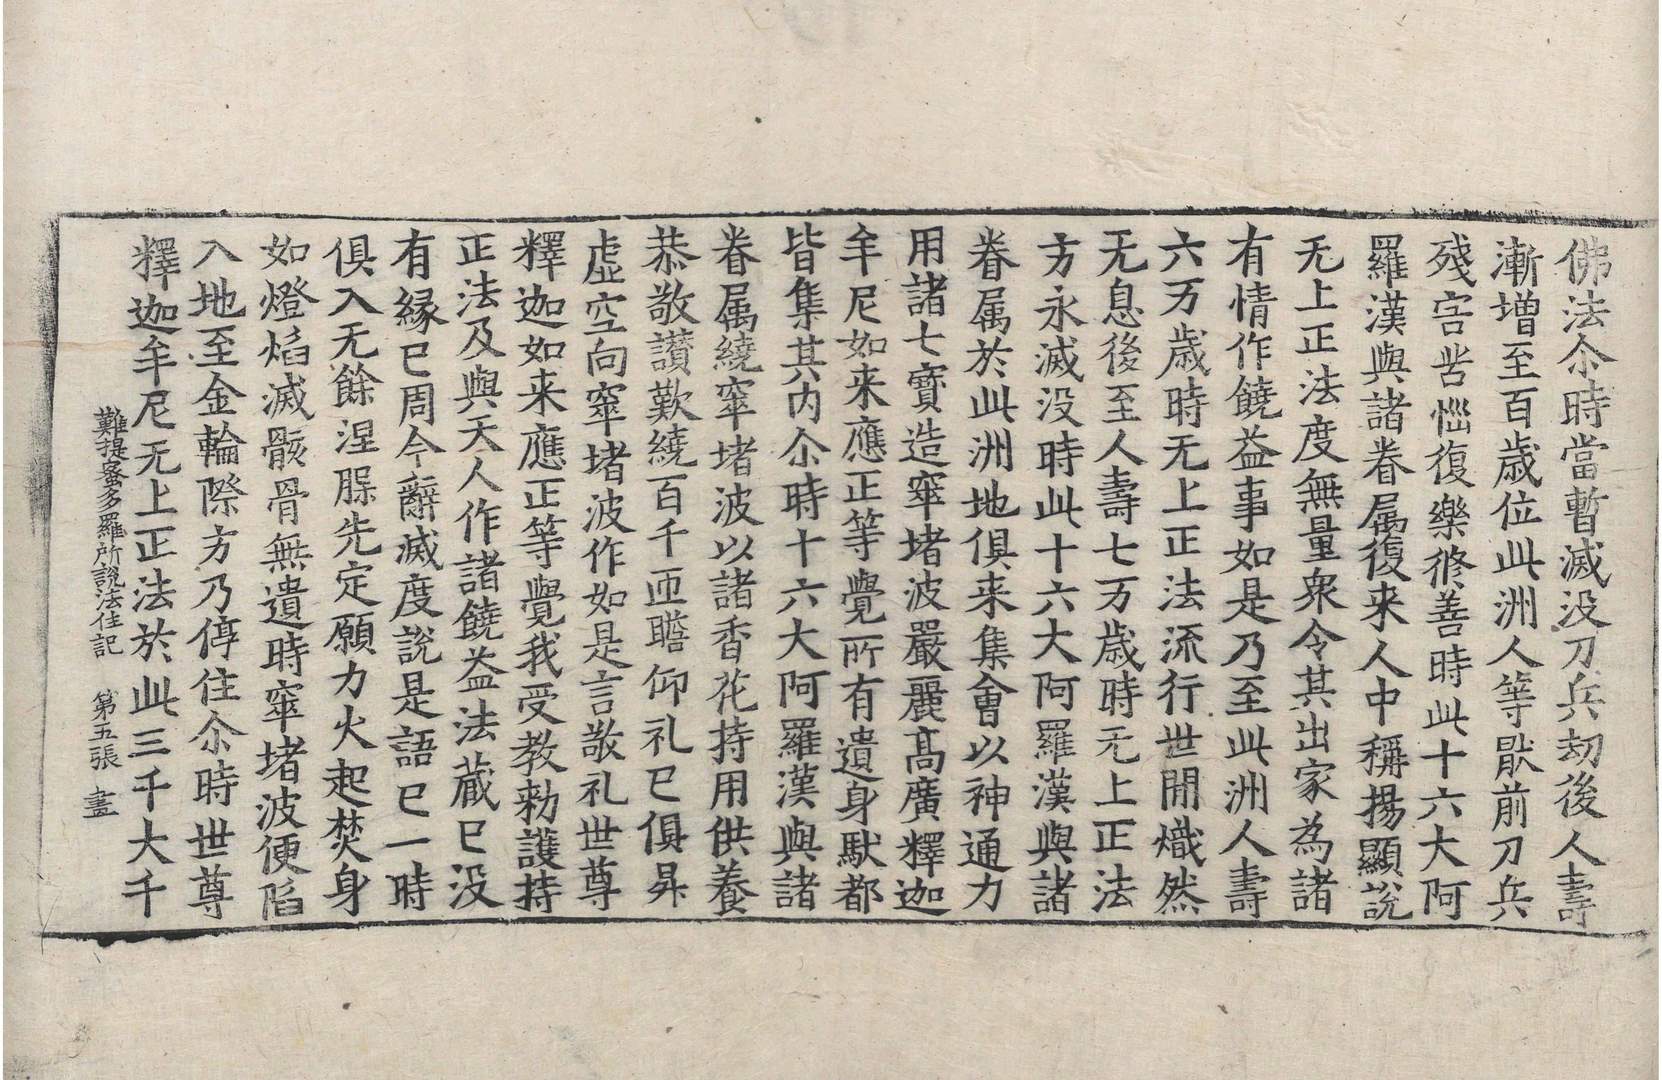 佛法尒時當暫滅没刀兵劫後人壽
漸增至百歲位此洲人等猒前刀兵
殘害苦惱復樂修善時此十六大阿
羅漢與諸眷属復来人中稱揚顯説
无上正法度無量衆令其出家為諸
有情作饒益事如是乃至此洲人壽
六万歲時无上正法流行世間熾然
无息後至人壽七万歲時无上正法
方永滅没時此十六大阿羅漢與諸
眷属於此洲地俱来集會以神通力
用諸七寶造窣堵波嚴麗髙廣釋迦
牟尼如来應正等覺所有遺身馱都
皆集其内尒時十六大阿羅漢與諸
眷属繞窣堵波以諸香花持用供養
恭敬讃歎繞百千帀瞻仰礼已俱昇
虛空向窣堵波作如是言敬礼世尊
釋迦如来應正等覺我受教勑護持
正法及與天人作諸饒益法藏已没
有縁已周今辭滅度說是語已一時
俱入无餘涅槃先定願力火起焚身
如燈焰滅骸骨無遺時窣堵波便陷
入地至金輪際方乃停住尒時世尊
釋迦牟尼无上正法於此三千大千
難提蜜多羅所說法住記 第五張 晝